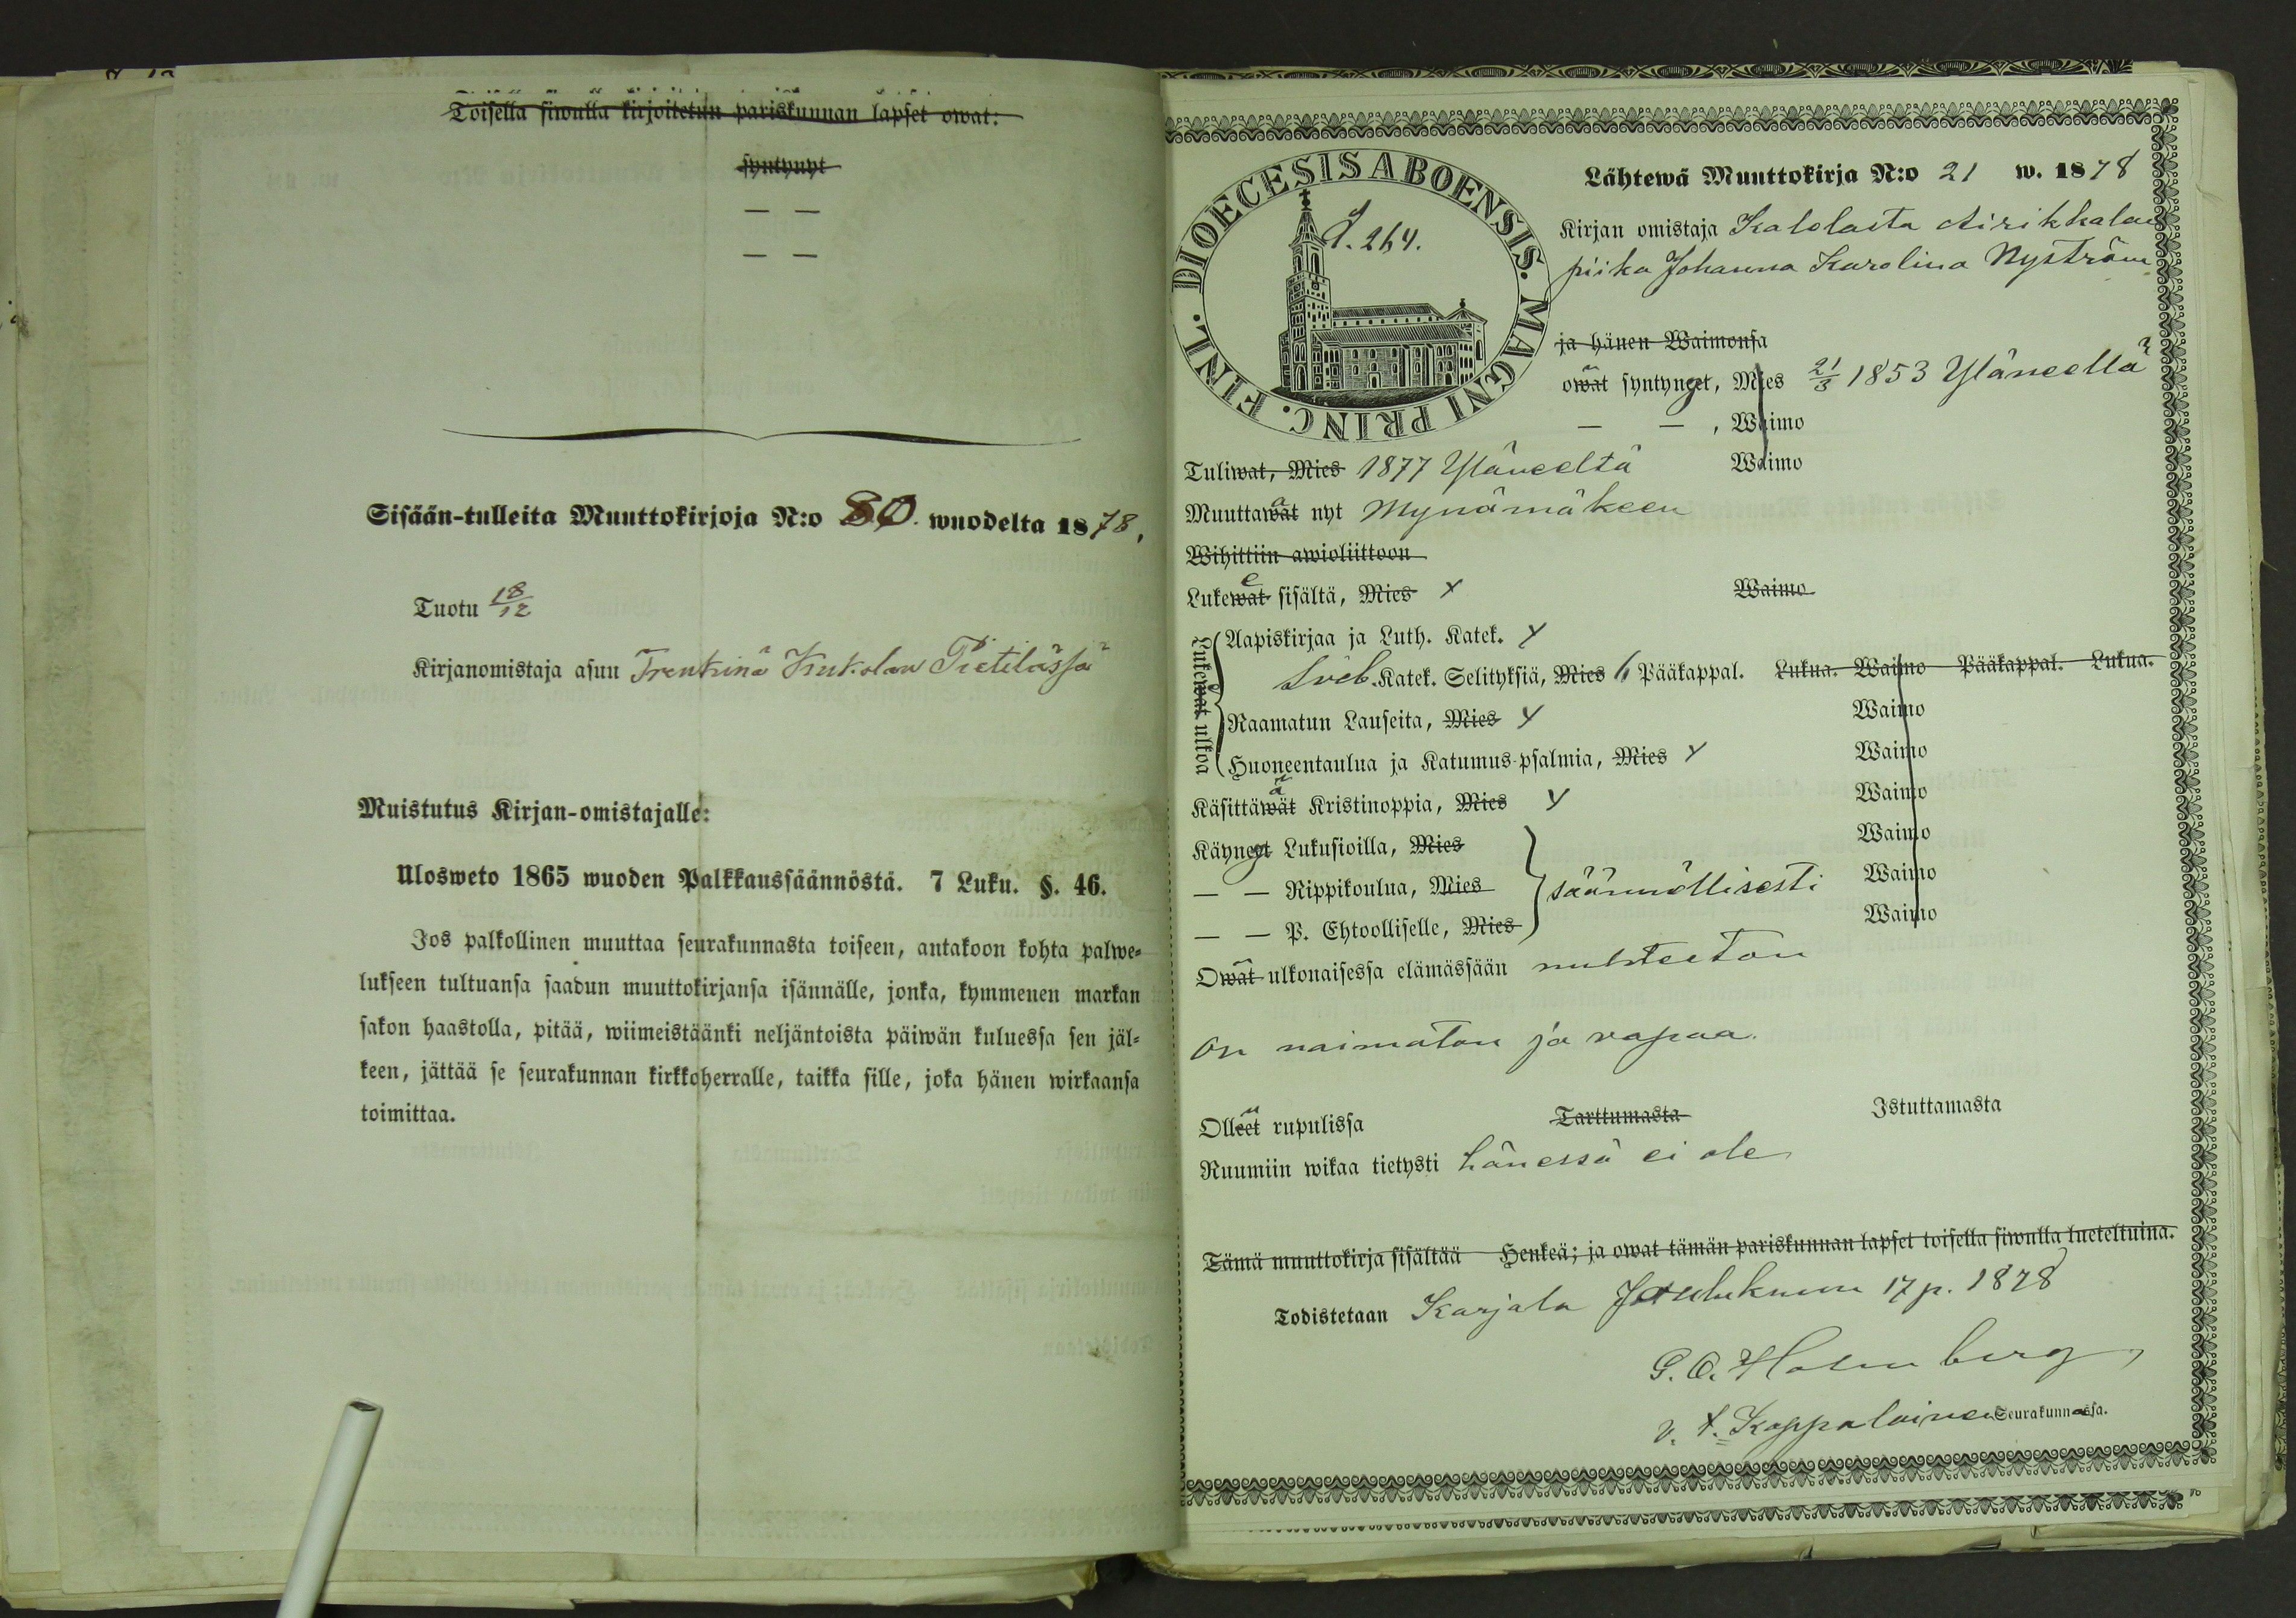 Toisella siwulla kirjoitetun pariskunnan lapset owat:
syntynyt
— —
— —
Sisään-tulleita Muuttokirjoja N:o 80. wuodelta 1878,
Tuotu 18/12
Kirjanomistaja asuu Trenkinä Kukolan Pietilässä
Muistutus Kirjan-omistajalle:
Ulosweto 1865 wuoden Palkkaussäännöstä. 7 Luku. §. 46.
Jos palkollinen muuttaa seurakunnasta toiseen, antakoon kohta palwe-
lukseen tultuansa saadun muuttokirjansa isännälle, jonka, kymmenen markan
sakon haastolla, pitää, wiimeistäänki neljäntoista päiwän kuluessa sen jäl-
keen, jättää se seurakunnan kirkkoherralle, taikka sille, joka hänen wirkaansa
toimittaa.
DIOECESIS ABOENSIS. MAGNI PRINC. FINL.
264.
Lähtewä Muuttokirja N:o 21 w. 1878
Kirjan omistaja Kalolasta Airikkalan
piika Johanna Karolina Nyström
ja hänen Waimonsa
owat syntynyet, Mies 21/3 1853 Yläneellä
— — , Waimo
Tuliwat, Mies 1877 Yläneeltä Waimo
Muuttawat nyt Mynämäkeen
Wihittiin awioliittoon
Lukewat sisältä, Mies y Waimo
Lukewat ulkoa
Aapiskirjaa ja Luth. Katek. y
Sveb. Katek. Selityksiä, Mies 6 Pääkappal. Lukua. Waimo Pääkappal. Lukua.
Raamatun Lauseita, Mies y Waimo
Huoneentaulua ja Katumus-psalmia, Mies y Waimo
Käsittäwät Kristinoppia, Mies y Waimo
Käyneet Lukusioilla, Mies Waimo
— — Rippikoulua, Mies säännöllisesti Waimo
— — P. Ehtoolliselle, Mies Waimo
Owat ulkonaisessa elämässään nuhteeton
On naimaton ja vapaa.
Olleet rupulissa Tarttumasta Istuttamasta
Ruumiin wikaa tietysti hänessä ei ole
Tämä muuttokirja sisältää Henkeä; ja owat tämän pariskunnan lapset toisella siwulla lueteltuina.
Todistetaan Karjala Joulukuun 17 p. 1878
G. A. Holmberg,
v. t. Kappalainen Seurakunnassa.